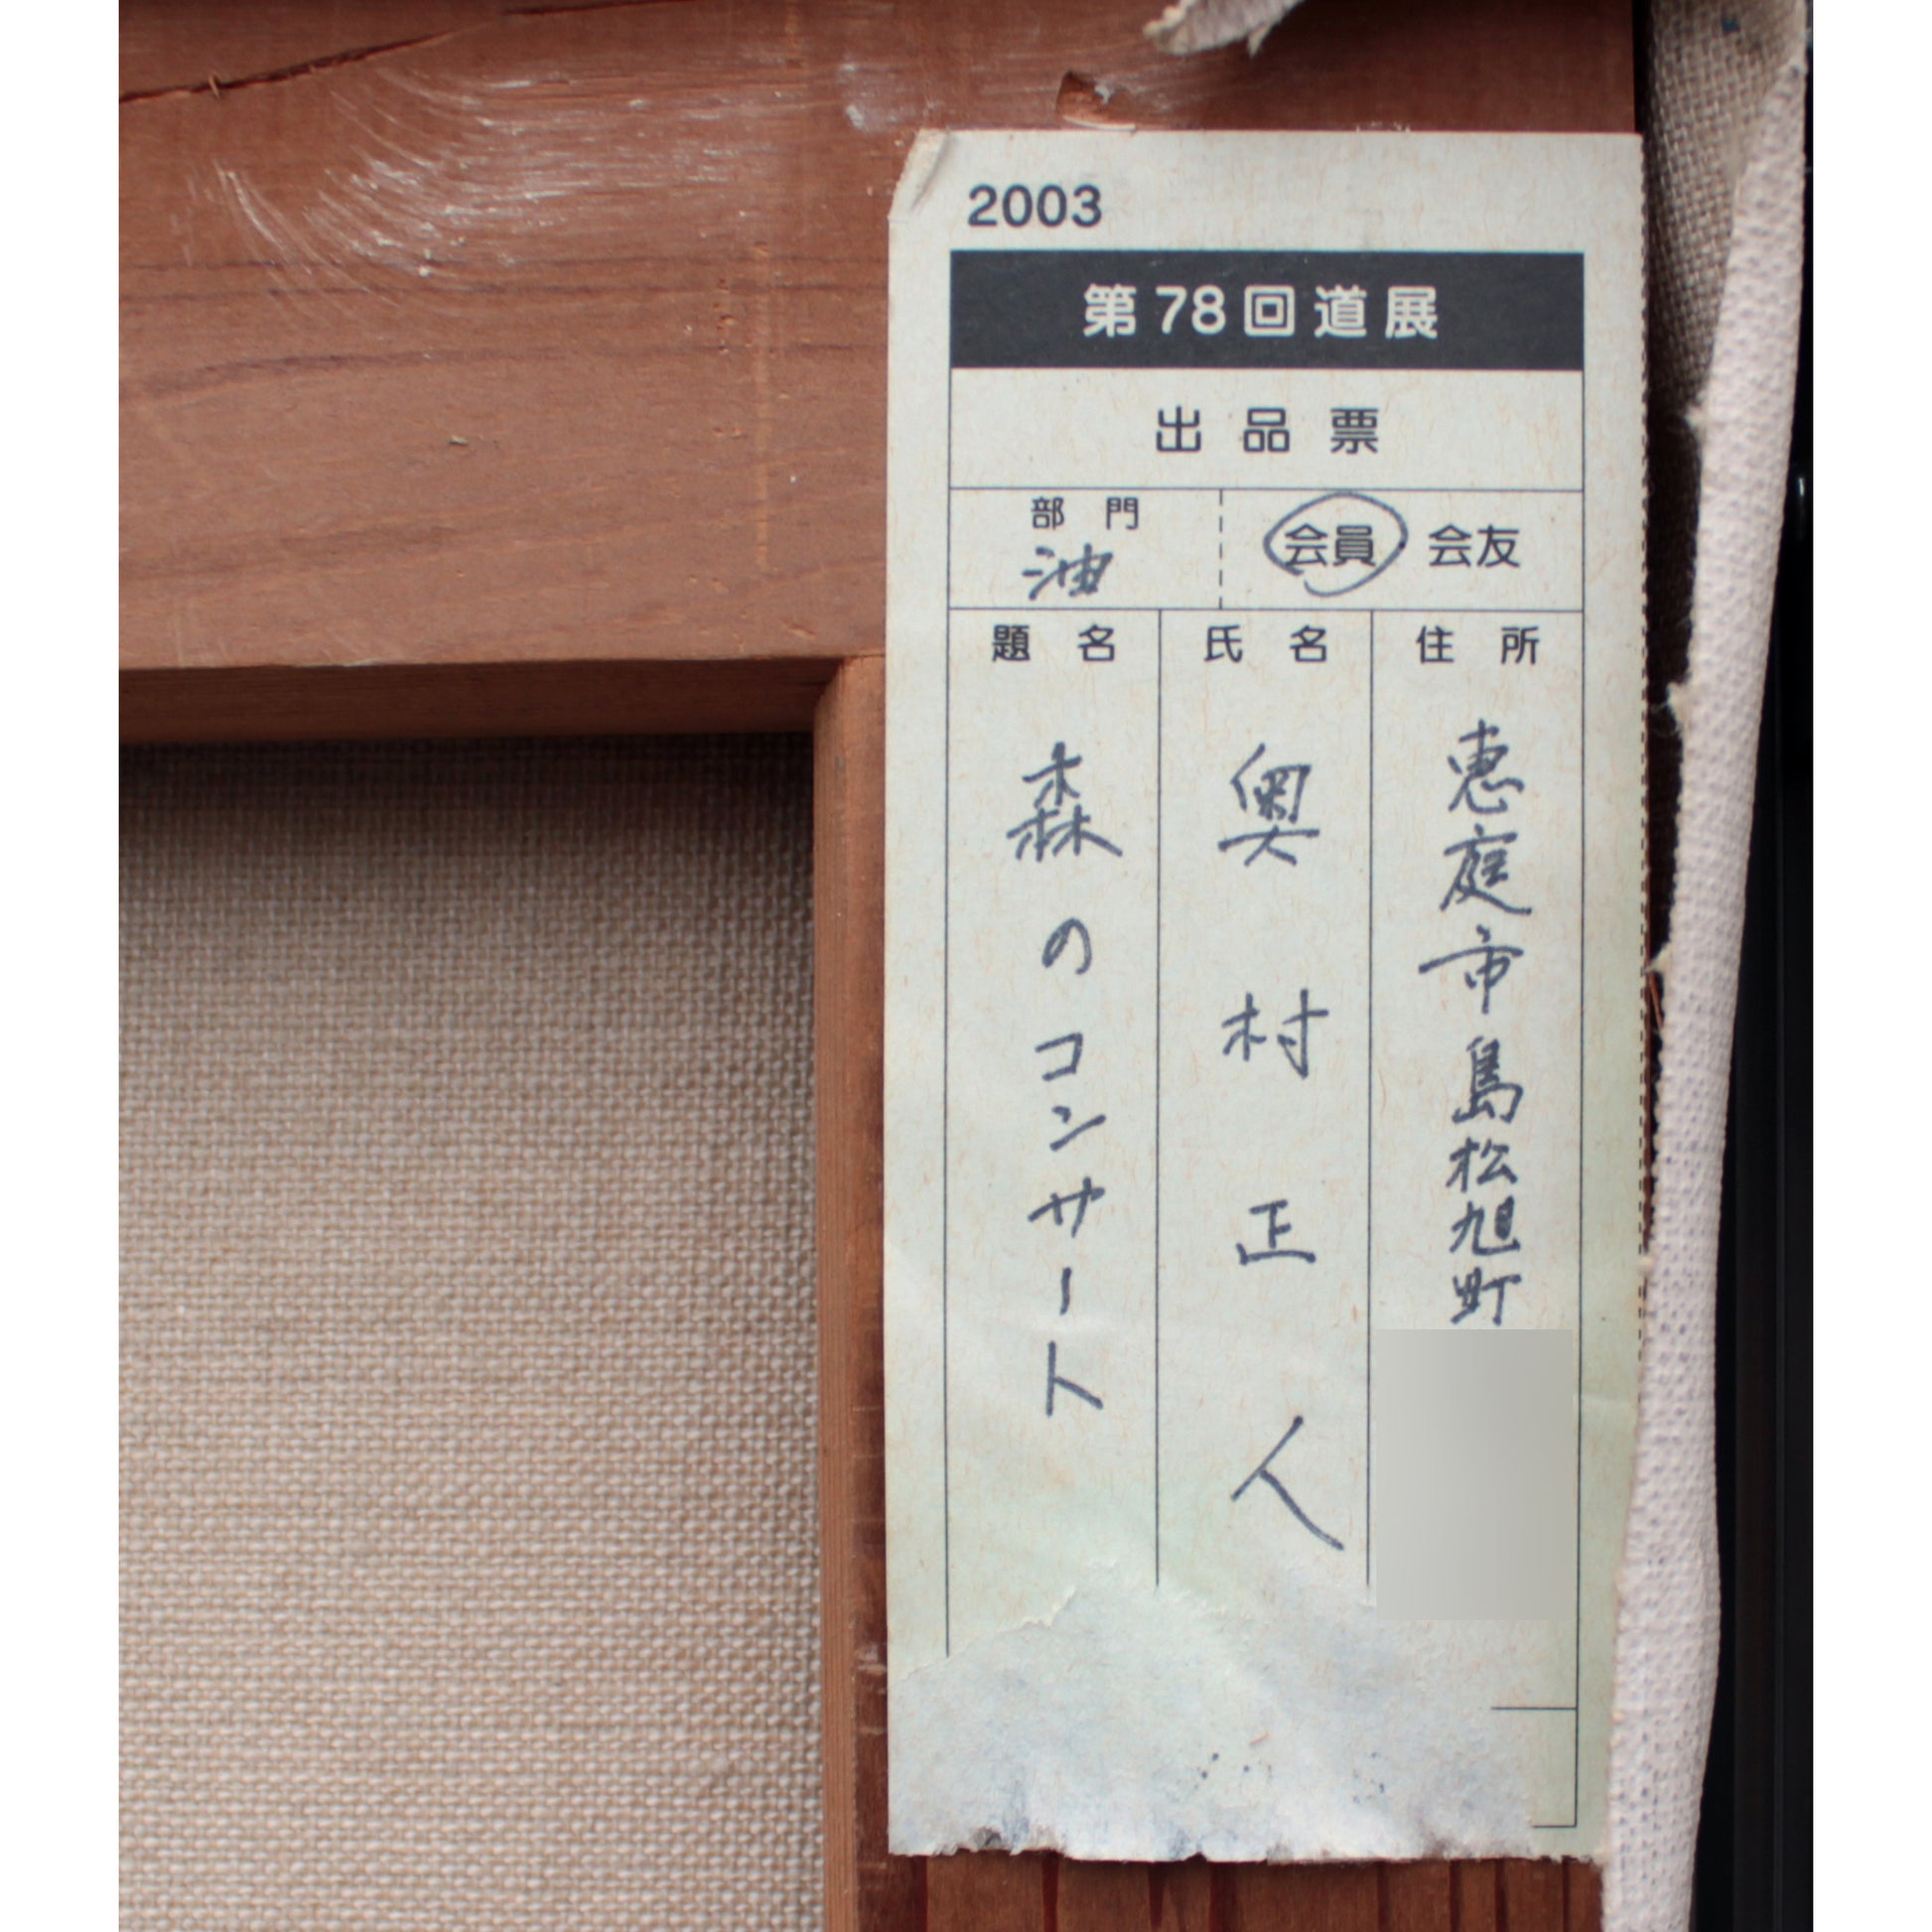 2003
第78回道展
出品票
部門
油
会員 会友
住所
恵庭市島松旭町
氏名
奥村正人
題名
森のコンサート